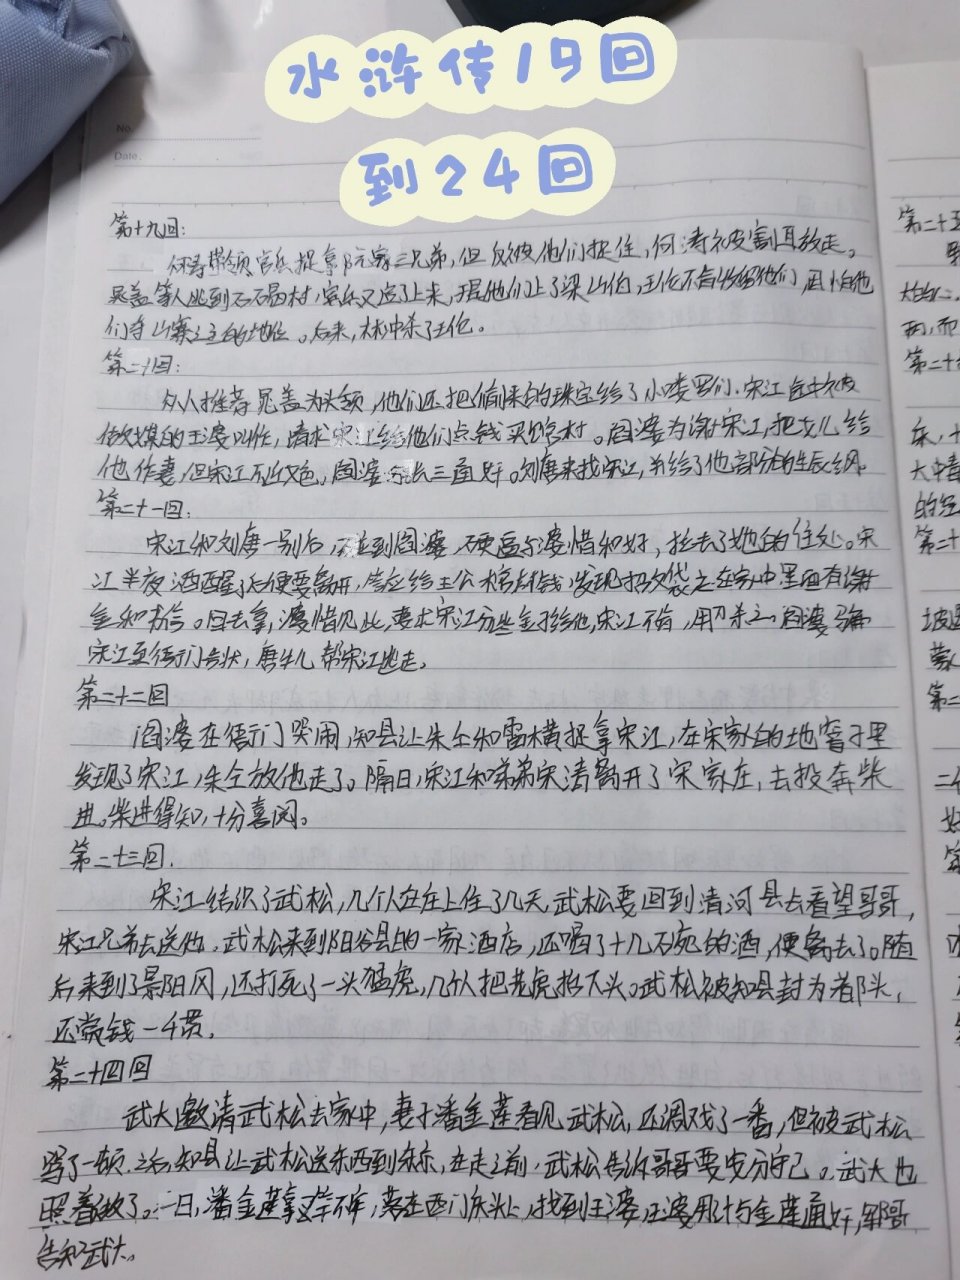 水浒传19回
到24回
No.
Date.
第十九回:
何涛带领官兵捉拿阮家三兄弟,但反被他们捉住,何涛被割耳放走。
晁盖等人逃到石碣村,官兵又追了上来,于是他们上了梁山伯,王伦不肯收留他们,因怕他
们夺山寨之主的地位。后来,林冲杀了王伦。
第二十回:
众人推荐晁盖为头领,他们还把偷来的珠宝给了小喽罗们.宋江途中被
做媒的王婆叫住,请求宋江给他们点钱买棺材。阎婆为谢宋江,把女儿给
他作妻,但宋江不近女色,阎婆 张三通奸。刘唐来找宋江,并给了他部分的生辰纲。
第二十一回:
宋江和刘唐一别后,碰到阎婆,硬逼与婆惜和好,拉去了她的住处。宋
江半夜酒醒了后便要离开,答应给王公棺材钱,发现招文袋 在家中里面有谢
金和书信。回去拿,婆惜见此,要求宋江分些金给他,宋江不肯,用刀杀之。阎婆骗
宋江至衙门告状,唐牛儿帮宋江逃走。
第二十二回
阎婆在衙门哭闹,知县让朱仝和雷横捉拿宋江,在宋家的地窖子里
发现了宋江,朱仝放他走了。隔日,宋江和弟弟宋清离开了宋家庄,去投奔柴
进。柴进得知,十分喜闵。
第二十三回.
宋江结识了武松,几个人在庄上住了几天,武松要回到清河县去看望哥哥,
宋江兄弟去送他。武松来到阳谷县的一家酒店,还喝了十几碗的酒,便离去了。随
后来到了景阳冈,还打死了一头猛虎,几个人把老虎抬下头。武松被知县封为着都头,
还赏钱一千贯。
第二十四回
武大邀请武松去家中,妻子潘金莲看见武松,还调戏了一番,但被武松
骂了一顿.之后,知县让武松送东西到东京,在走之前,武松告诉哥哥要安分守己。武大也
照着做了。一日,潘金莲拿叉竿不牢,落在西门庆头上,找到王婆,王婆用计与金莲通奸,郓哥
告知武大。
第二十五
第二十